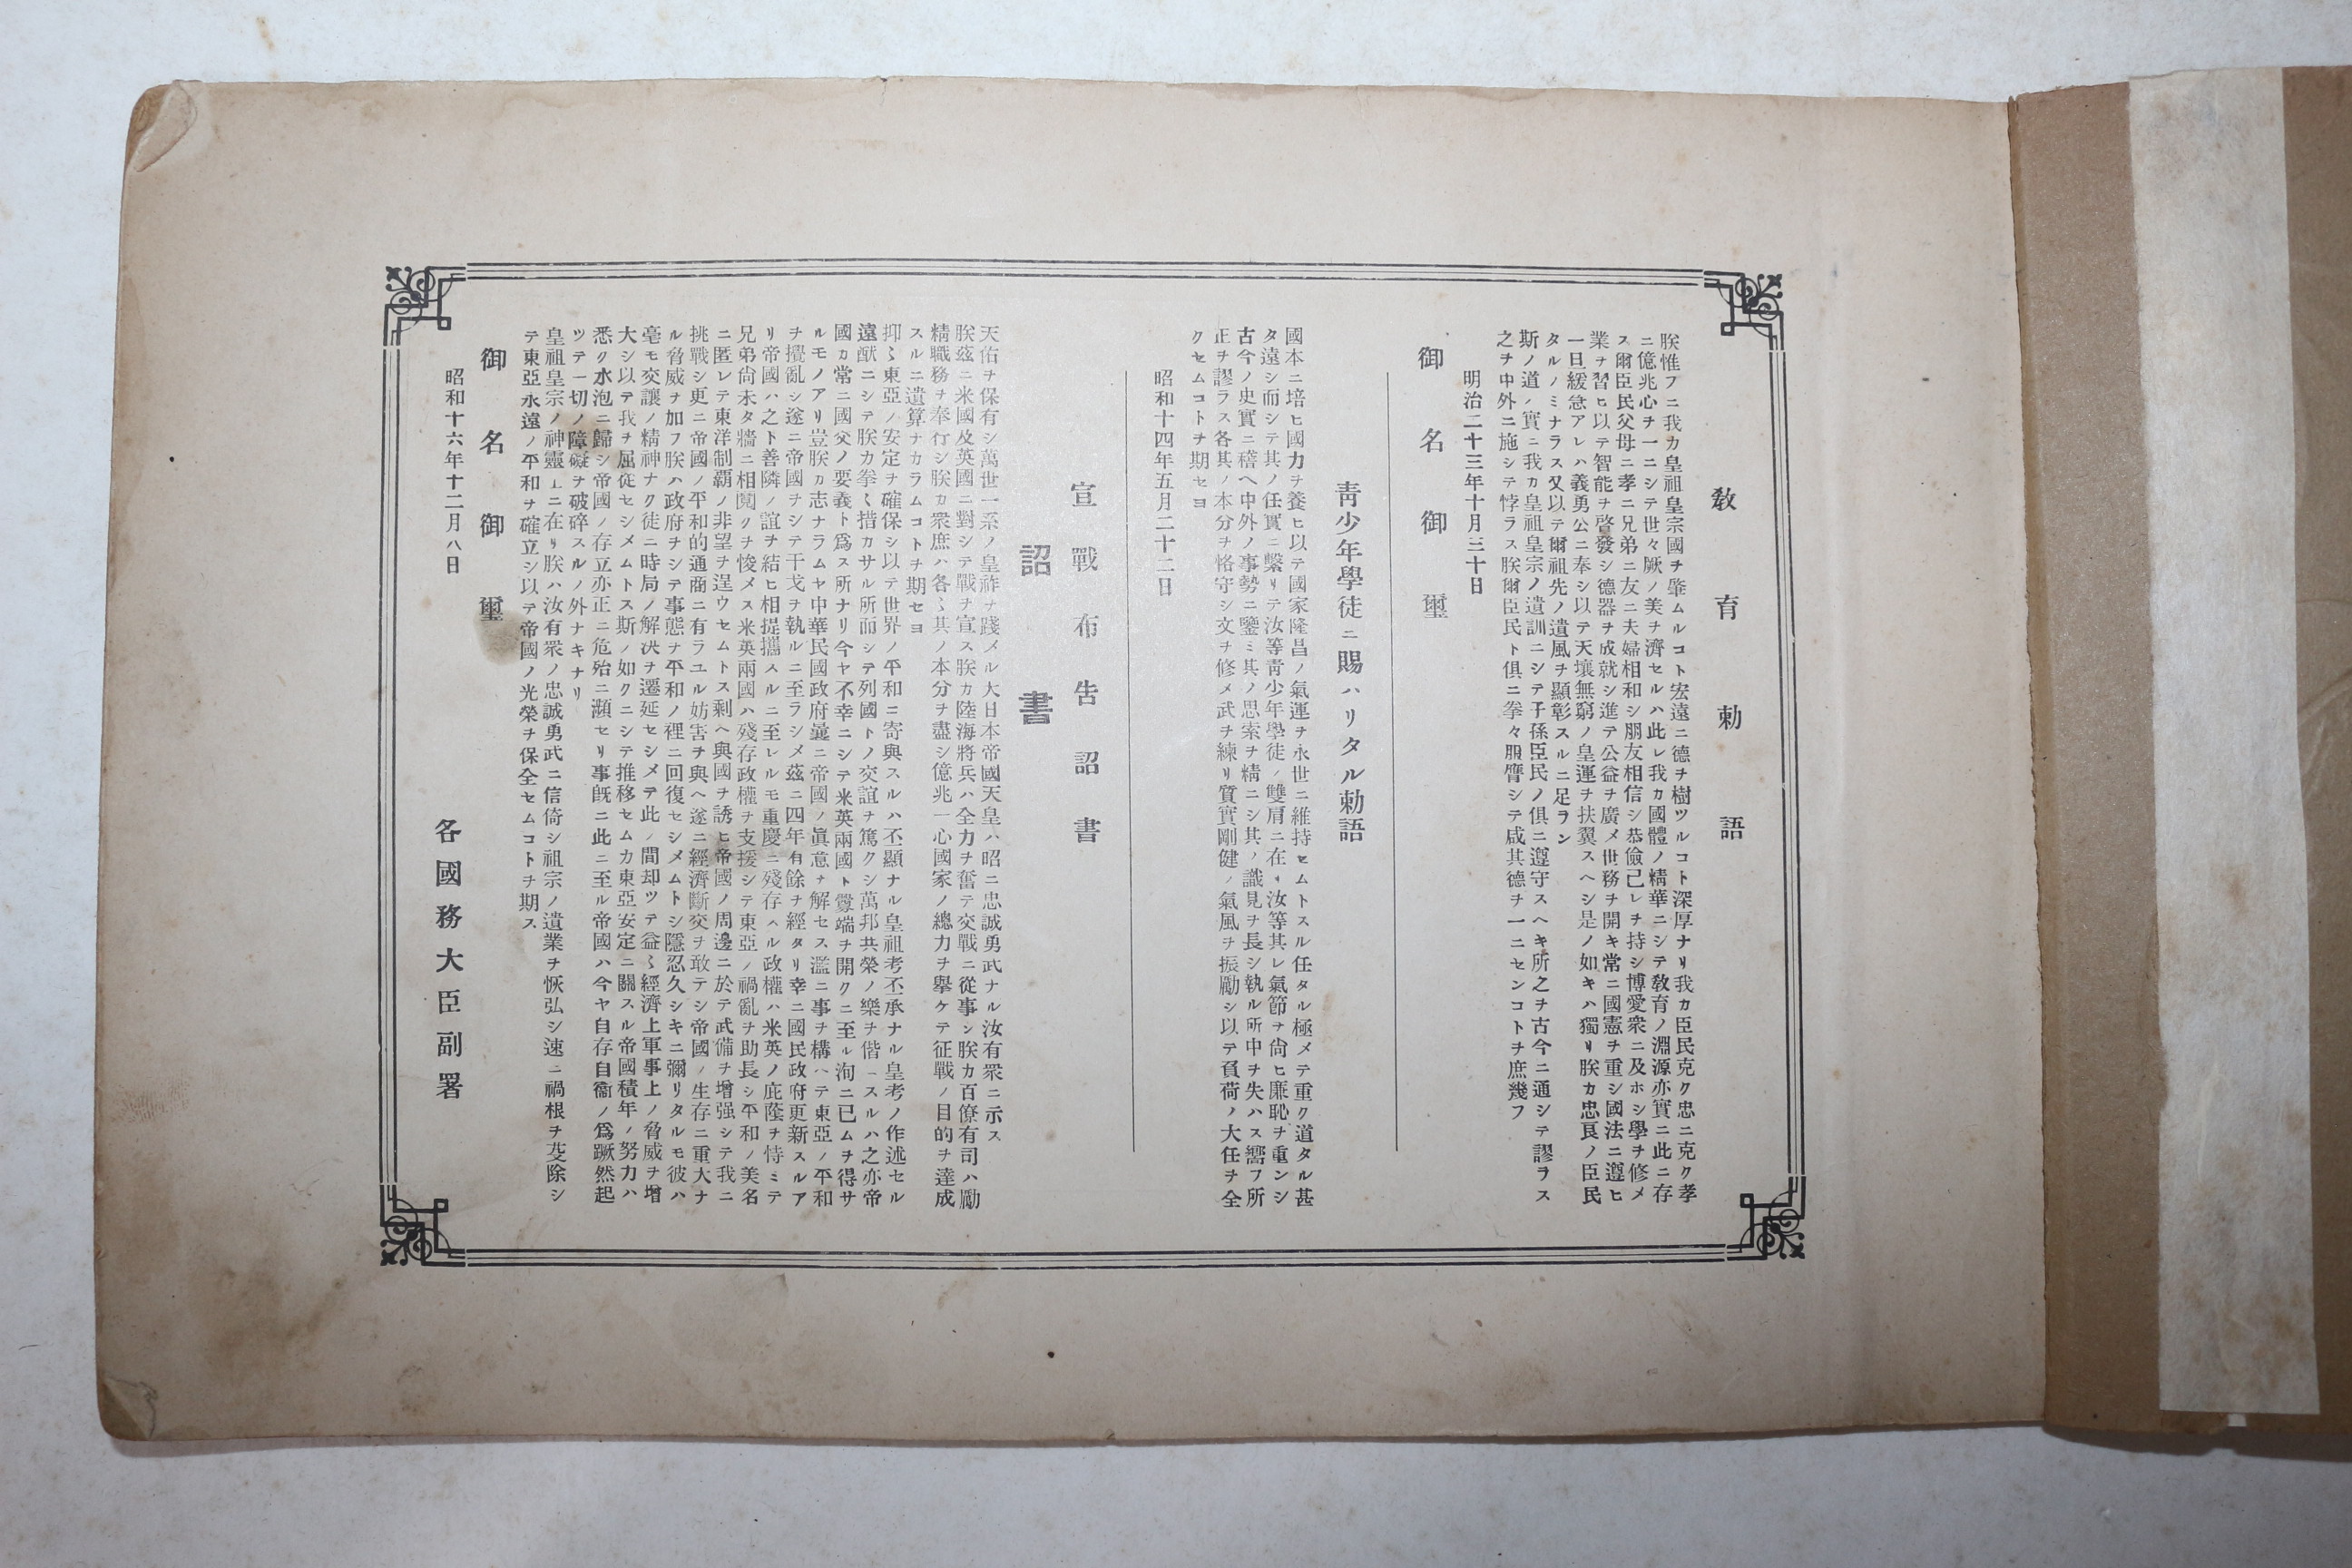 敎育勅語
朕惟フニ我カ皇祖皇宗國ヲ肇ムルコト宏遠ニ德ヲ樹ツルコト深厚ナリ我カ臣民克ク忠ニ克ク孝
ニ億兆心ヲ一ニシテ世々厥ノ美ヲ濟セルハ此レ我カ國體ノ精華ニシテ敎育ノ淵源亦實ニ此ニ存
ス爾臣民父母ニ孝ニ兄弟ニ友ニ夫婦相和シ朋友相信シ恭儉己レヲ持シ博愛衆ニ及ホシ學ヲ修メ
業ヲ習ヒ以テ智能ヲ啓發シ德器ヲ成就シ進テ公益ヲ廣メ世務ヲ開キ常ニ國憲ヲ重シ國法ニ遵ヒ
一旦緩急アレハ義勇公ニ奉シ以テ天壤無窮ノ皇運ヲ扶翼スヘシ是ノ如キハ獨リ朕カ忠良ノ臣民
タルノミナラス又以テ爾祖先ノ遺風ヲ顯彰スルニ足ラン
斯ノ道ノ實ニ我カ皇祖皇宗ノ遺訓ニシテ子孫臣民ノ俱ニ遵守スヘキ所之ヲ古今ニ通シテ謬ラス
之ヲ中外ニ施シテ悖ラス朕爾臣民ト俱ニ拳々服膺シテ咸其德ヲ一ニセンコトヲ庶幾フ
明治二十三年十月三十日
御名御璽
靑少年學徒ニ賜ハリタル勅語
國本ニ培ヒ國力ヲ養ヒ以テ國家隆昌ノ氣運ヲ永世ニ維持セムトスル任タル極メテ重ク道タル甚
タ遠シ而シテ其ノ任實ニ繫リテ汝等靑少年學徒ノ雙肩ニ在リ汝等其レ氣節ヲ尙ヒ廉恥ヲ重ンシ
古今ノ史實ニ稽ヘ中外ノ事勢ニ鑒ミ其ノ思索ヲ精ニシ其ノ識見ヲ長シ執ル所中ヲ失ハス嚮フ所
正ヲ謬ラス各其ノ本分ヲ恪守シ文ヲ修メ武ヲ練リ質實剛健ノ氣風ヲ振勵シ以テ負荷ノ大任ヲ全
クセムコトヲ期セヨ
昭和十四年五月二十二日
宣戰布吿詔書
詔書
天佑ヲ保有シ萬世一系ノ皇祚ヲ踐メル大日本帝國天皇ハ昭ニ忠誠勇武ナル汝有衆ニ示ス
朕玆ニ米國及英國ニ對シテ戰ヲ宣ス朕カ陸海將兵ハ全力ヲ奮テ交戰ニ從事シ朕カ百僚有司ハ勵
精職務ヲ奉行シ朕カ衆庶ハ各〻其ノ本分ヲ盡シ億兆一心國家ノ總力ヲ擧ケテ征戰ノ目的ヲ達成
スルニ遺算ナカラムコトヲ期セヨ
抑〻東亞ノ安定ヲ確保シ以テ世界ノ平和ニ寄與スルハ丕顯ナル皇祖考丕承ナル皇考ノ作述セル
遠猷ニシテ朕カ拳〻措カサル所而シテ列國トノ交誼ヲ篤クシ萬邦共榮ノ樂ヲ偕ニスルハ之亦帝
國カ常ニ國交ノ要義ト爲ス所ナリ今ヤ不幸ニシテ米英兩國ト釁端ヲ開クニ至ル洵ニ已ムヲ得サ
ルモノアリ豈朕カ志ナラムヤ中華民國政府曩ニ帝國ノ眞意ヲ解セス濫ニ事ヲ構ヘテ東亞ノ平和
ヲ攪亂シ遂ニ帝國ヲシテ干戈ヲ執ルニ至ラシメ玆ニ四年有餘ヲ經タリ幸ニ國民政府更新スルア
リ帝國ハ之ト善隣ノ誼ヲ結ヒ相提攜スルニ至レルモ重慶ニ殘存スル政權ハ米英ノ庇蔭ヲ恃ミテ
兄弟尙未タ牆ニ相鬩クヲ悛メス米英兩國ハ殘存政權ヲ支援シテ東亞ノ禍亂ヲ助長シ平和ノ美名
ニ匿レテ東洋制覇ノ非望ヲ逞ウセムトス剩ヘ與國ヲ誘ヒ帝國ノ周邊ニ於テ武備ヲ增强シテ我ニ
挑戰シ更ニ帝國ノ平和的通商ニ有ラユル妨害ヲ與ヘ遂ニ經濟斷交ヲ敢テシ帝國ノ生存ニ重大ナ
ル脅威ヲ加フ朕ハ政府ヲシテ事態ヲ平和ノ裡ニ回復セシメムトシ隱忍久シキニ彌リタルモ彼ハ
毫モ交讓ノ精神ナク徒ニ時局ノ解決ヲ遷延セシメテ此ノ間却ツテ益〻經濟上軍事上ノ脅威ヲ增
大シ以テ我ヲ屈從セシメムトス斯ノ如クニシテ推移セムカ東亞安定ニ關スル帝國積年ノ努力ハ
悉ク水泡ニ歸シ帝國ノ存立亦正ニ危殆ニ瀕セリ事既ニ此ニ至ル帝國ハ今ヤ自存自衞ノ爲蹶然起
ツテ一切ノ障礙ヲ破碎スルノ外ナキナリ
皇祖皇宗ノ神靈上ニ在リ朕ハ汝有衆ノ忠誠勇武ニ信倚シ祖宗ノ遺業ヲ恢弘シ速ニ禍根ヲ芟除シ
テ東亞永遠ノ平和ヲ確立シ以テ帝國ノ光榮ヲ保全セムコトヲ期ス
御名御璽
昭和十六年十二月八日
各國務大臣副署